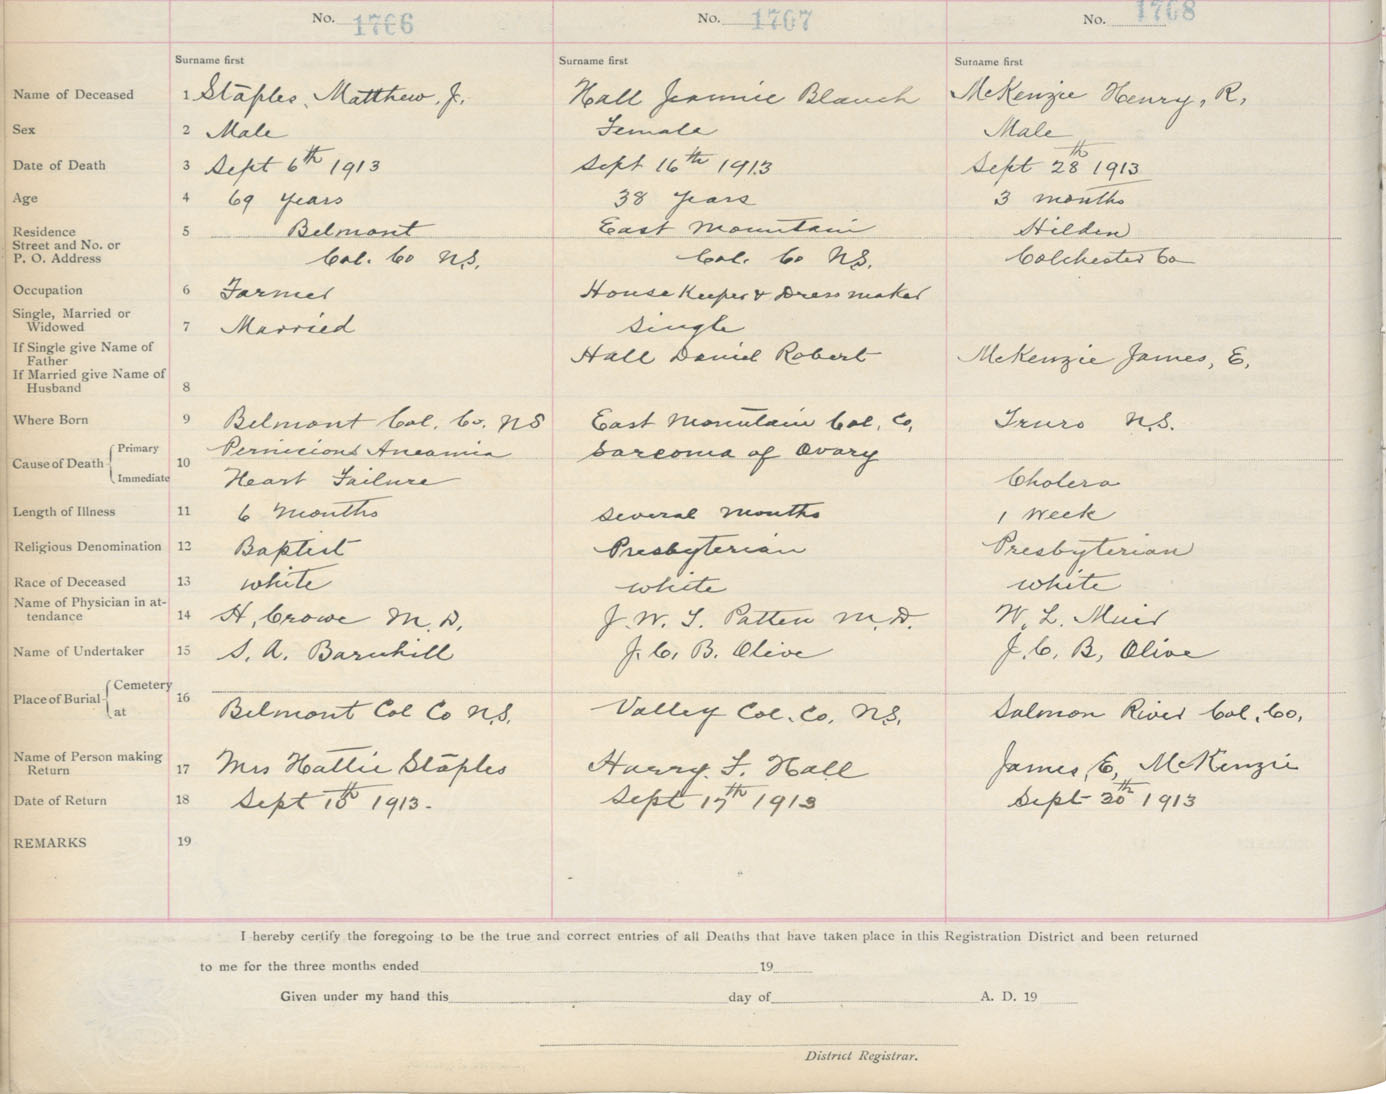 No. 1766 No. 1767 No. 1768
Surname first Surname first Surname first
Name of Deceased 1 Staples, Matthew. J. Hall Jeannie Blanch McKenzie Henry, R.
Sex 2 Male Female Male
Date of Death 3 Sept 6th 1913 Sept 16th 1913 Sept 28th 1913
Age 4 69 years 38 years 3 months
Residence 5 Belmont East Mountain Hilden
Street and No. or
P. O. Address Col. Co N.S. Col. Co N.S. Colchester Co
Occupation 6 Farmer House Keeper & Dressmaker
Single, Married or
Widowed 7 Married Single
If Single give Name of
Father Hall Daniel Robert McKenzie James, E.
If Married give Name of
Husband 8
Where Born 9 Belmont Col. Co. NS East Mountain Col. Co. Truro N.S.
Cause of Death Primary 10 Pernicious Aneamia Sarcoma of Ovary
Immediate Heart Failure Cholera
Length of Illness 11 6 Months several months 1 Week
Religious Denomination 12 Baptist Presbyterian Presbyterian
Race of Deceased 13 white white white
Name of Physician in at-
tendance 14 H. Crowe M.D. J. W. T. Patten M.D. W. L. Muir
Name of Undertaker 15 S. A. Barnhill J. C. B. Olive J. C. B. Olive
Place of Burial Cemetery 16
at Belmont Col Co N.S. Valley Col. Co. N.S. Salmon River Col. Co.
Name of Person making
Return 17 Mrs Hattie Staples Harry. F. Hall James, E, McKenzie
Date of Return 18 Sept 10th 1913. Sept 17th 1913 Sept 30th 1913
REMARKS 19
I hereby certify the foregoing to be the true and correct entries of all Deaths that have taken place in this Registration District and been returned
to me for the three months ended 19
Given under my hand this day of A. D. 19
District Registrar.